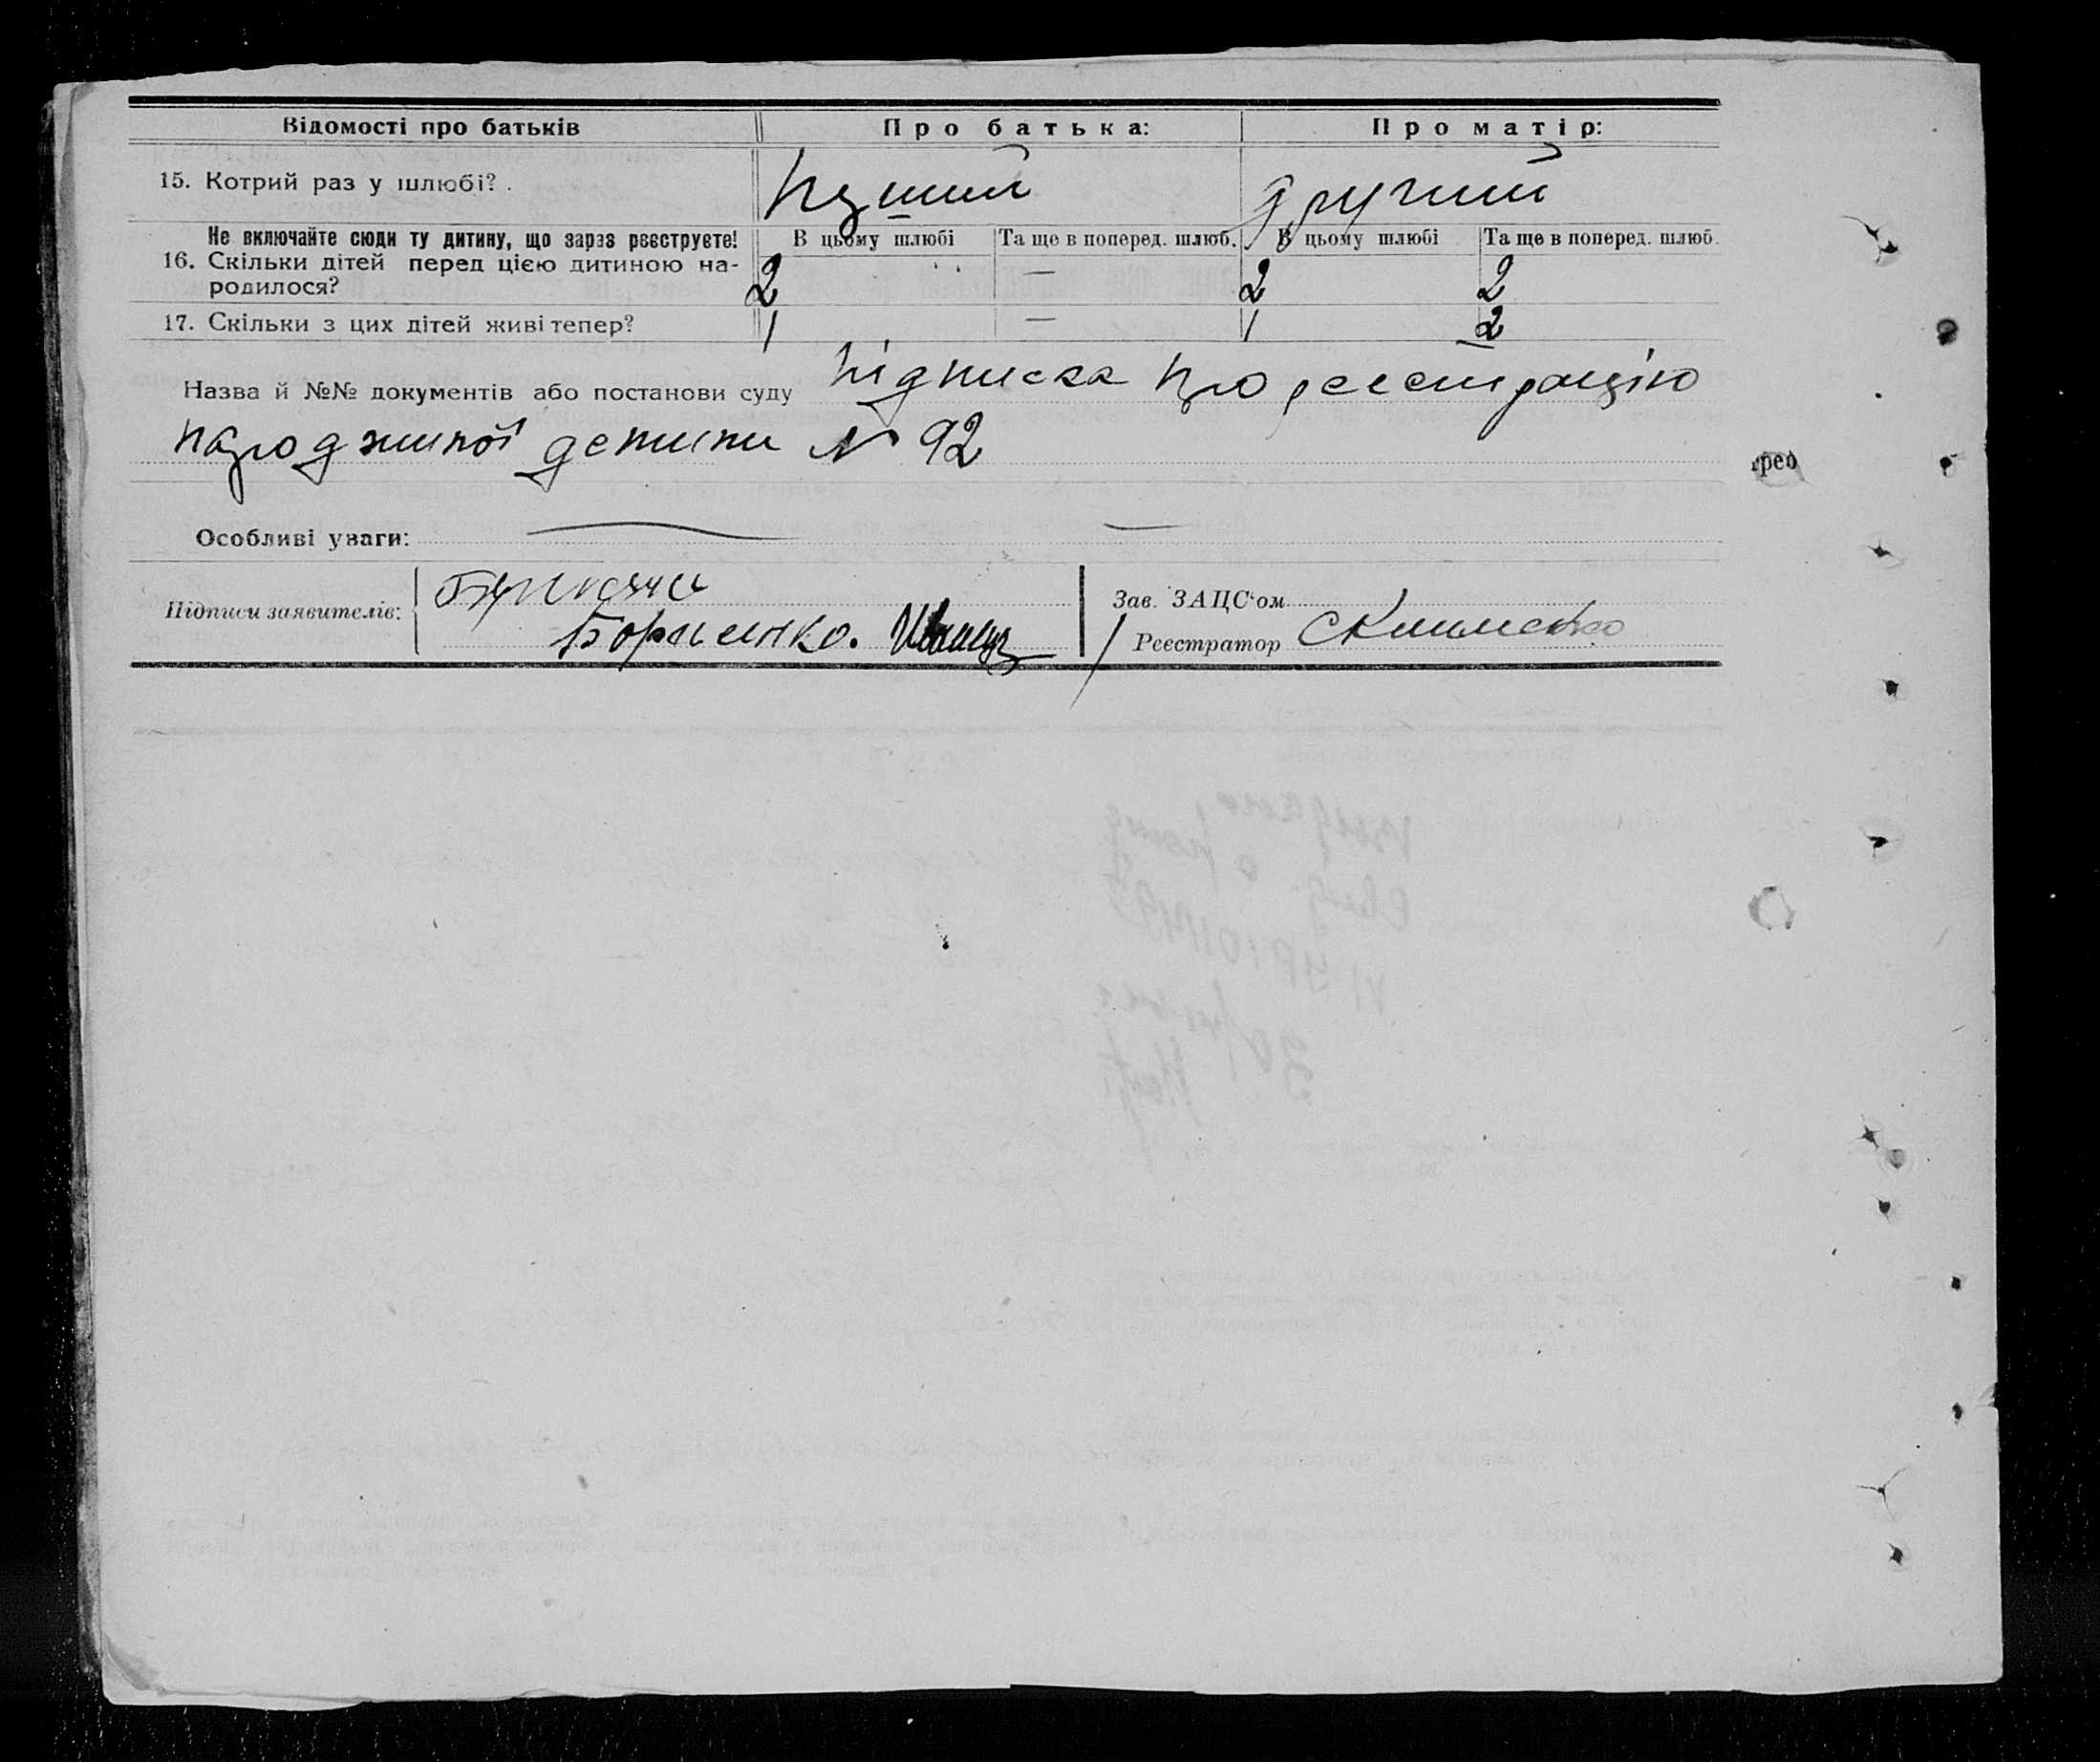 Відомості про батьків Про батька: Про матір:
15. Котрий раз у шлюбі? . перший другий
Не включайте сюди ту дитину, що зараз рєєструєте! В цьому шлюбі Та ще в поперед. шлюб. В цьому шлюбі Та ще в поперед. шлюб.
16. Скільки дітей перед цією дитиною на-
родилося? 2 — 2 2
17. Скільки з цих дітей живі тепер? 1 — 1 2
Назва й №№ документів або постанови суду підписка про реєстрацію
народжиної детини N 92
Особливі уваги: — —
Підписи заявителів:
Зав. ЗАЦС'ом
Борисенко.
Реєстратор СКлименко
рео